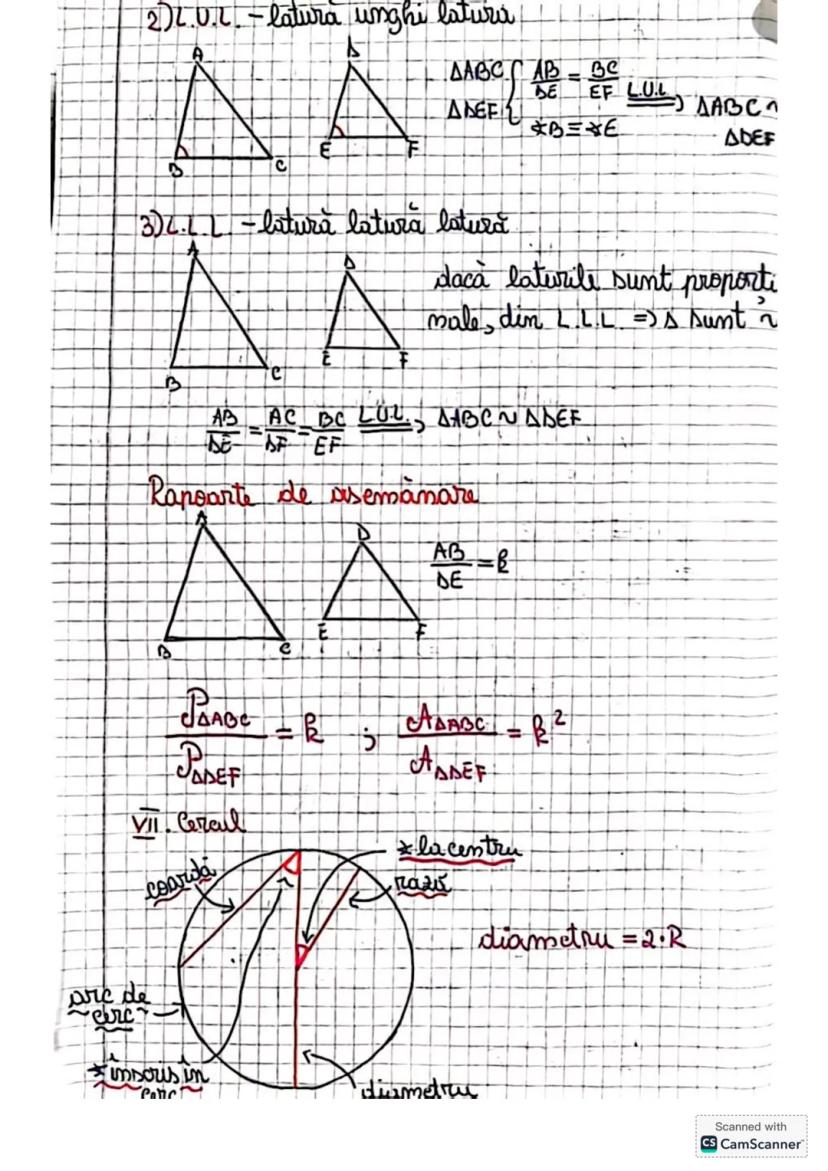 2) L.U.L. - latură unghi latură
A
D
B
C
E
F
ΔABC { AB/DE = BC/EF
ΔDEF { ∢B ≡ ∢E
L.U.L. => ΔABC ~
ΔDEF
3) L.L.L. - latură latură latură
A
D
B
C
E
F
dacă laturile sunt proporți
nale, din L.L.L. => Δ sunt ~
AB/DE = AC/DF = BC/EF L.U.L. => ΔABC ~ ΔDEF
Rapoarte de asemănare
A
D
B
C
E
F
AB/DE = k
PΔABC/PΔDEF = k ; AΔABC/AΔDEF = k²
VII. Cercul
∢ la centru
coardă
rază
diametru = 2·R
arc de
cerc
∢ înscris în
cerc
diametru
Scanned with
CS CamScanner